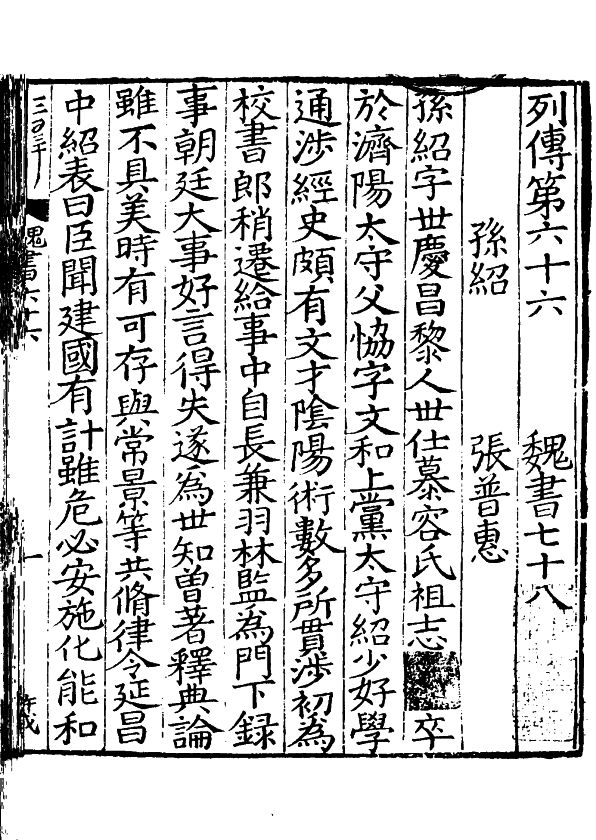 列傳第六十六 魏書七十八
孫紹 張普惠
孫紹字世慶昌黎人世仕慕容氏祖志卒
於濟陽太守父恊字文和上黨太守紹少好學
通涉經史頗有文才陰陽術數多所貫涉初為
校書郎稍遷給事中自長兼羽林監為門下録
事朝廷大事好言得失遂為世知曽著釋典論
雖不具美時有可存與常景等共脩律令延昌
中紹表曰臣聞建國有計雖危必安施化能和
魏書六十六 一